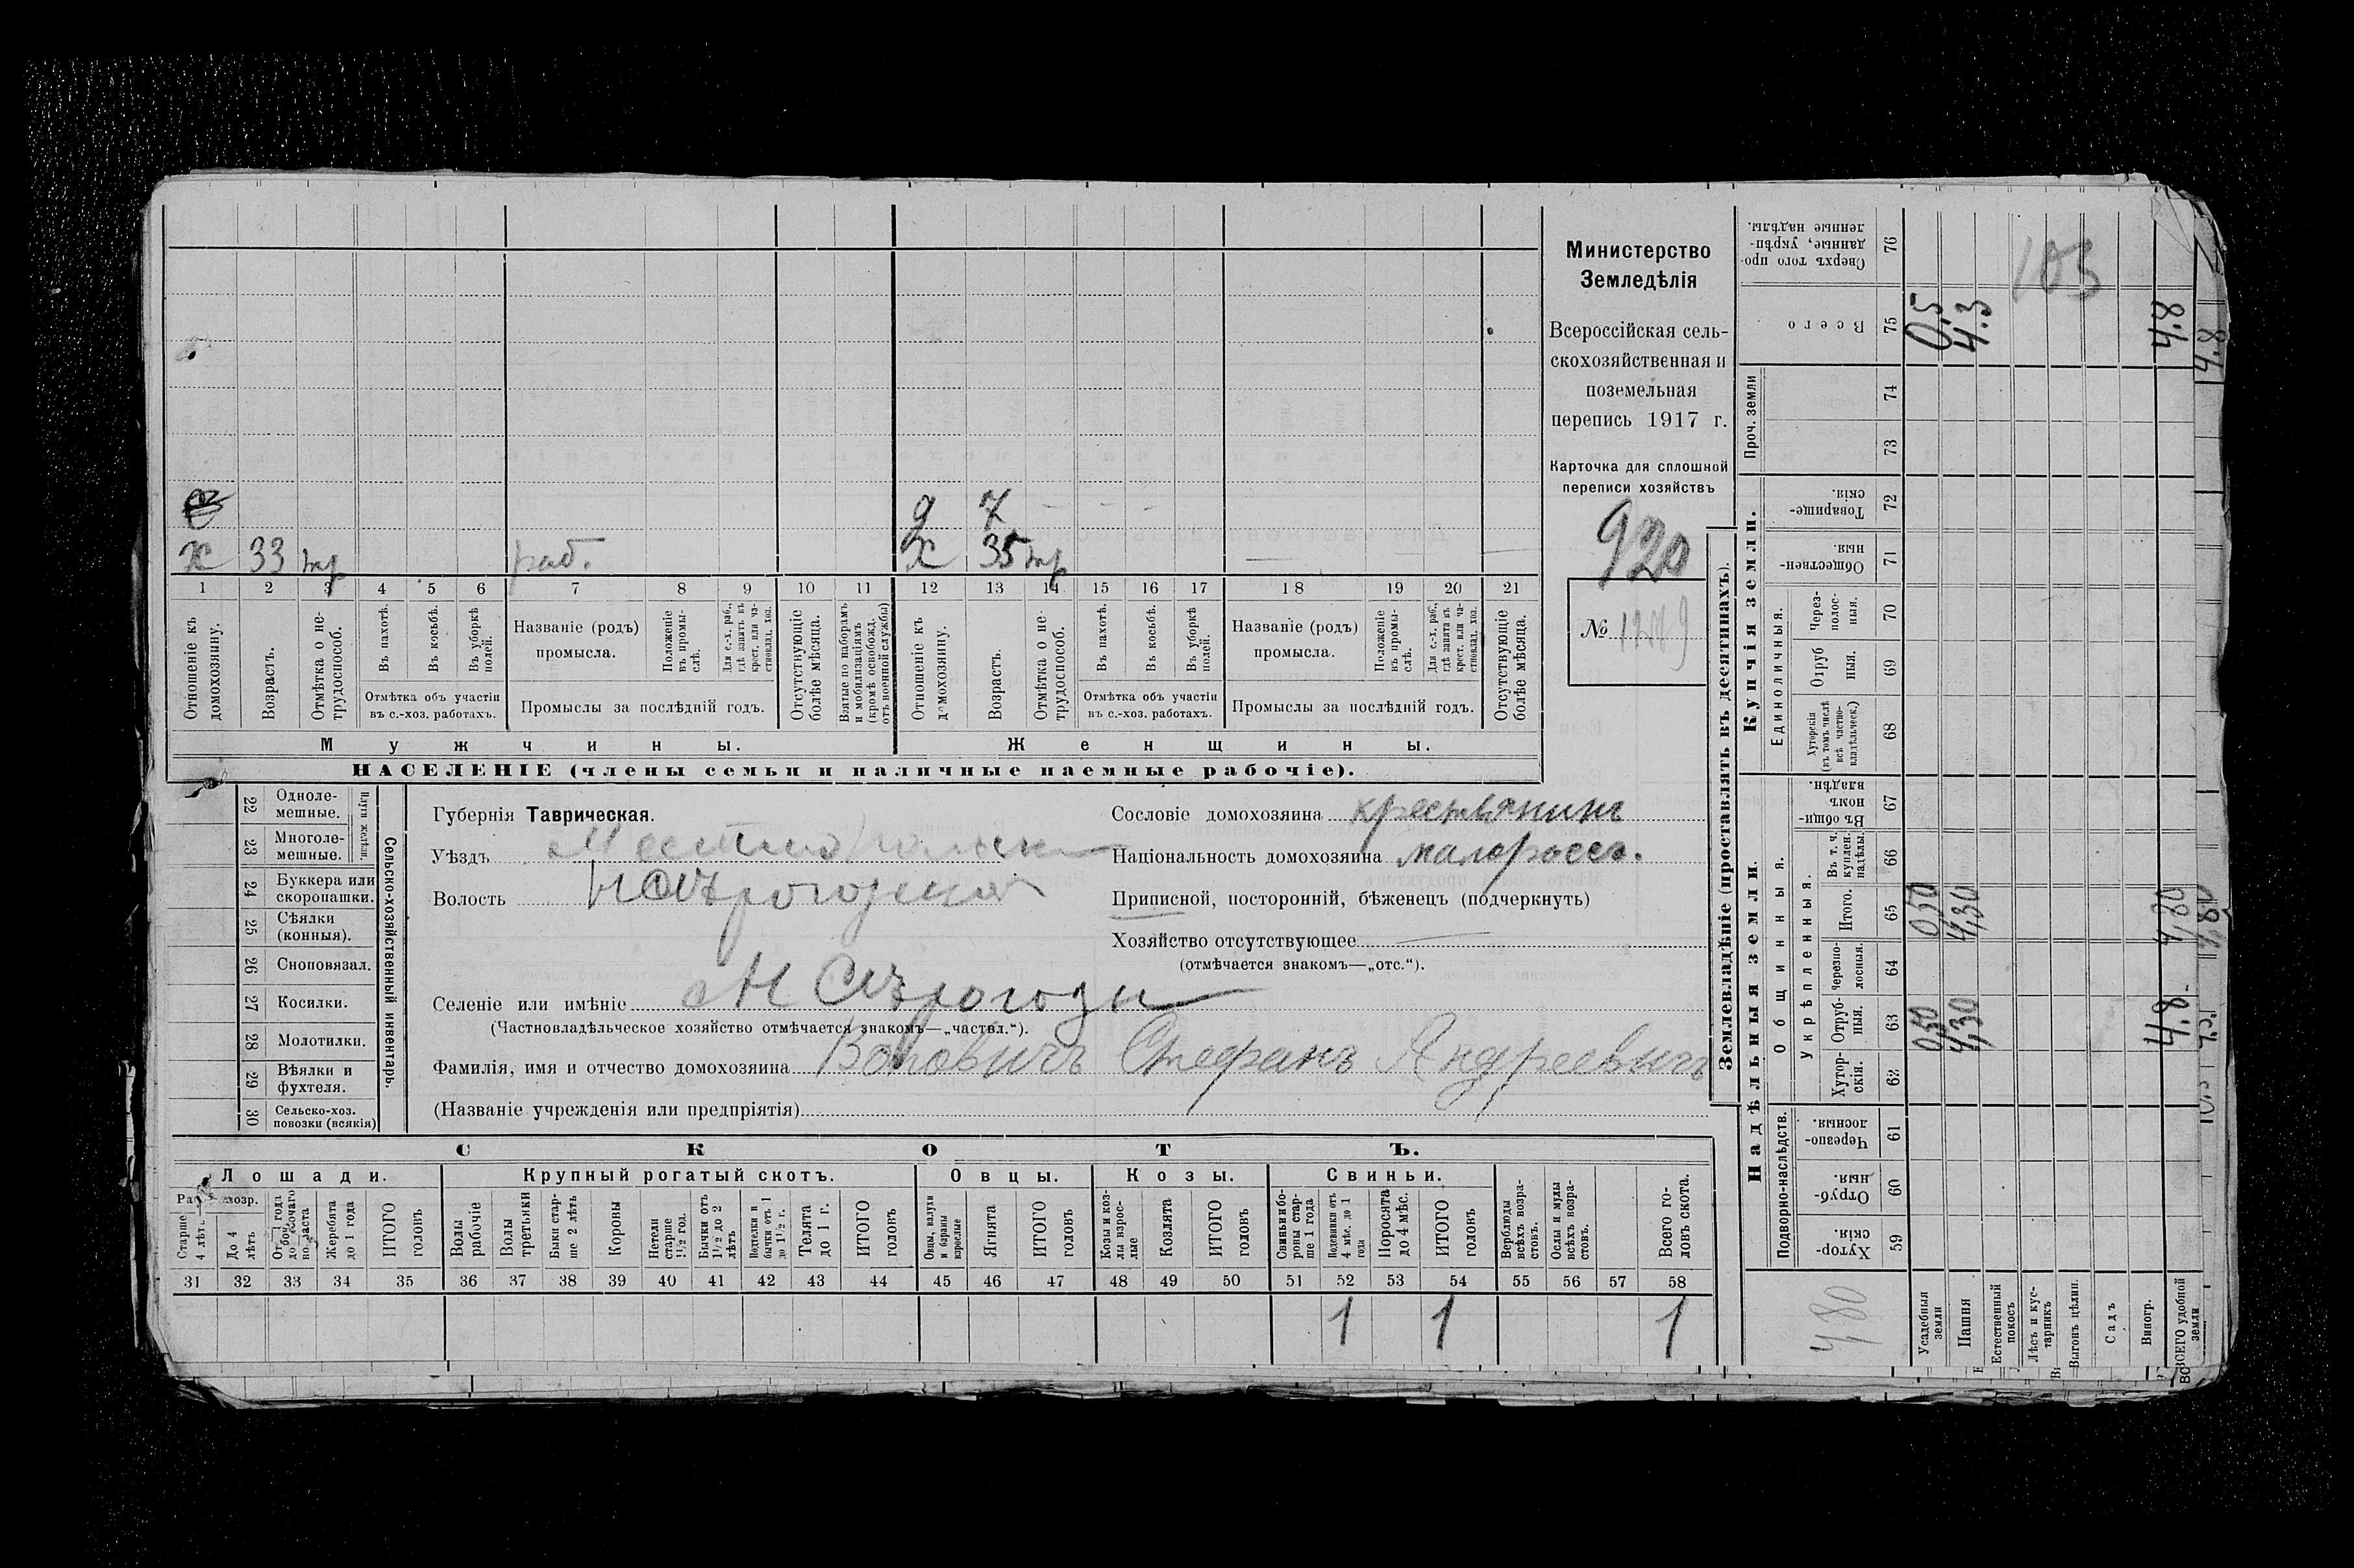 х 33 тр раб. х 35 тр
д 7
1 2 3 4 5 6 7 8 9 10 11 12 13 14 15 16 17 18 19 20 21
Отношеніе къ домохозяину.
Возрастъ.
Отмѣтка о не-трудоспособ.
Въ пахотѣ.
Въ косьбѣ.
Въ уборкѣ полей.
Отмѣтка объ участіи
въ с.-хоз. работахъ.
Названіе (родъ)
промысла.
Положеніе въ промы-слѣ.
Для с.-х. раб., гдѣ занятъ въ крест. или ча-стновлад. хоз.
Промыслы за послѣдній годъ.
Отсутствующіе болѣе мѣсяца.
Взятые по наборамъ и мобилизаціямъ (кромѣ освобожд. отъ военной службы)
Отношеніе къ домохозяину.
Возрастъ.
Отмѣтка о не-трудоспособ.
Въ пахотѣ.
Въ косьбѣ.
Въ уборкѣ полей.
Отмѣтка объ участіи
въ с.-хоз. работахъ.
Названіе (родъ)
промысла.
Положеніе въ промы-слѣ.
Для с.-х. раб., гдѣ занята въ крест. или ча-стновлад. хоз.
Промыслы за послѣдній годъ.
Отсутствующіе болѣе мѣсяца.
Мужчины.
Женщины.
НАСЕЛЕНІЕ (члены семьи и наличные наемные рабочіе).
Министерство
Земледѣлія
Всероссійская сель-
скохозяйственная и
поземельная
перепись 1917 г.
Карточка для сплошной
переписи хозяйствъ
920
№ 1289
22 Одноле-мешные.
23 Многоле-мешные.
Плуги желѣзн.
24 Буккера или скоропашки.
25 Сѣялки (конныя).
26 Сноповязал.
27 Косилки.
28 Молотилки.
29 Вѣялки и фухтеля.
30 Сельско-хоз. повозки (всякія)
Сельско-хозяйственный инвентарь.
Губернія Таврическая.
Уѣздъ Мелитопольск
Волость
Селеніе или имѣніе Н Сѣрогозы
(Частновладѣльческое хозяйство отмѣчается знакомъ—„частвл.“).
Фамилія, имя и отчество домохозяина Степанъ Андреевичъ
(Названіе учрежденія или предпріятія)
Сословіе домохозяина крестьянинъ
Національность домохозяина малороссъ.
Приписной, посторонній, бѣженецъ (подчеркнуть)
Хозяйство отсутствующее
(отмѣчается знакомъ—„отс.“).
СКОТЪ.
Лошади. Крупный рогатый скотъ. Овцы. Козы. Свиньи.
Старше 4 лѣтъ
До 4 лѣтъ
Жеребята до 1 года
ИТОГО головъ
Волы рабочіе
Волы третьяки
Быки стар-ше 2 лѣтъ
Коровы
Нетели старше 1½ год.
Бычки отъ 1½ до 2 лѣтъ
Подтелки и бычки отъ 1 до 1½ г.
Телята до 1 г.
ИТОГО головъ
Овцы, валухи и бараны взрослые
Ягнята
ИТОГО головъ
Козы и коз-лы взрос-лые
Козлята
ИТОГО головъ
Свиньи и бо-ровы стар-ше 1 года
Подсвинки отъ 4 мѣс. до 1 года
Поросята до 4 мѣс.
ИТОГО головъ
Верблюды всѣхъ возра-стовъ.
Ослы и мулы всѣхъ возра-стовъ.
Всего го-ловъ скота.
31 32 33 34 35 36 37 38 39 40 41 42 43 44 45 46 47 48 49 50 51 52 53 54 55 56 57 58
1 1 1
Землевладѣніе (проставлять въ десятинахъ).
Надѣльныя земли. Купчія земли. Проч. земли
Подворно-наслѣдств.
Общинныя.
Укрѣпленныя.
Единоличныя.
Хутор-скія. 59
Отруб-ныя. 60
Черезпо-лосныя. 61
Хутор-скія. 62
Отруб-ныя. 63
Черезпо-лосныя. 64
Итого. 65
Въ т. ч. куплен. надѣлы. 66
Въ общин-номъ владѣн. 67
Хуторскія (въ томъ числѣ всѣ частно-владѣльческ.) 68
Отрубныя. 69
Через-полос-ныя. 70
Обществен-ныя. 71
Товарище-скія. 72
73
74
Всего 75
Сверхъ того про-данные, укрѣп-ленные надѣлы. 76
Усадебныя земли 0,50 0,50 0,5
Пашня 4,30 4,30 4.3
Естественный покосъ
Лѣсъ и кус-тарникъ
Выгонъ цѣлин.
Садъ
Виногр.
ВСЕГО удобной земли
4.8 4,80 4.8
4,80
103